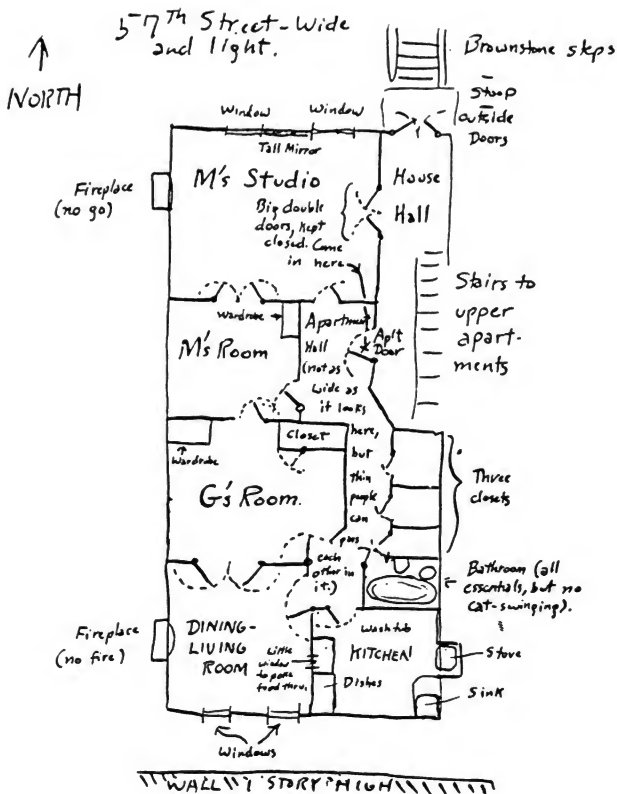 57th Street-Wide
and light.
NORTH
Brownstone steps
Stoop
outside
Doors
Window
Window
Tall Mirror
M's Studio
Fireplace
(no go)
Big double
doors, kept
closed. Come
in here
House
Hall
Stairs to
upper
apart-
ments
Wardrobe
M's Room
Apartment
Hall
(not as
wide as
it looks
here,
but
thin
people
can
pass
each
other in
it.)
Ap't
Door
Closet
Wardrobe
G's Room.
Three
closets
Bathroom (all
essentials, but no
cat-swinging).
Fireplace
(no fire)
DINING-
LIVING
ROOM
Little
window
to poke
food thru.
Washtub
KITCHEN
Dishes
Stove
Sink
Windows
WALL 1 STORY HIGH